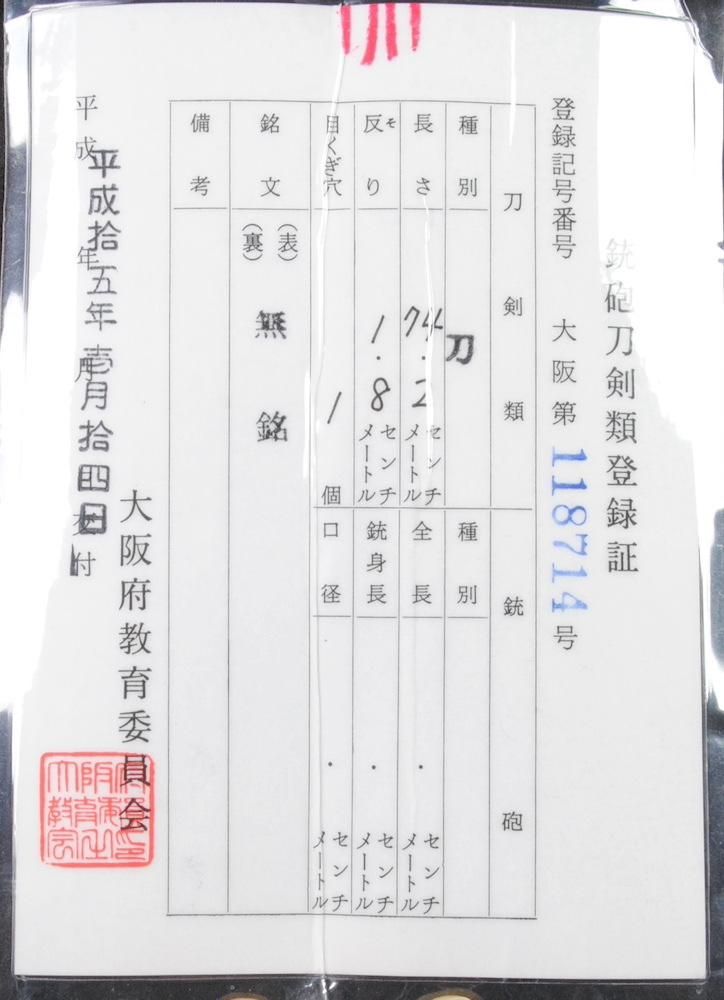 銃砲刀剣類登録証
登録記号番号 大阪第 118714 号
刀剣類
種別 刀
長さ 74.2 センチメートル
反り 1.8 センチメートル
ソ
目くぎ穴 1 個
銘文 (表) (裏) 無銘
備考
銃砲
種別
全長 . センチメートル
銃身長 . センチメートル
口径 . センチメートル
平成 年 月 交付
平成拾五年壱月拾四日
大阪府教育委員会